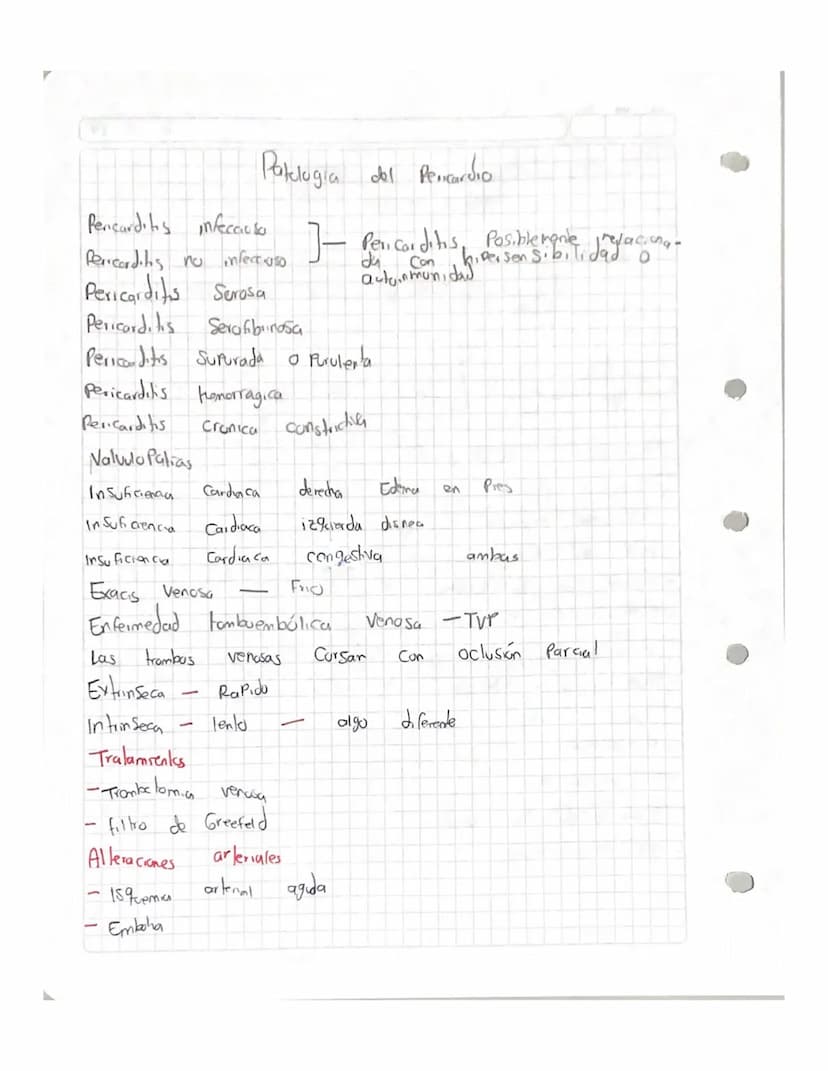 Patologia del Pericardio
Pericarditis infecciosa
Pericarditis no infecciosa
Pericarditis Posiblemente relaciona-
da con hipersensibilidad o
autoinmunidad
Pericarditis Serosa
Pericarditis Serofibrinosa
Pericarditis Supurada o Purulenta
Pericarditis hemorragica
Pericarditis Cronica constrictiva
Valvulopatias
Insuficiencia Cardiaca derecha Edema en Pies
Insuficiencia Cardiaca izquierda disnea
Insuficiencia Cardiaca congestiva ambas
Venosa — Frio
Enfermedad tombuembólica Venosa - TVP
Las trombos venosas Cursan Con oclusión Parcial
Extrinseca - Rapido
Intrinseca - lento - algo diferente
Tratamientos
- Trombectomia venosa
- filtro de Greefeld
Alteraciones arteriales
- Isquemia arterial aguda
- Embolia